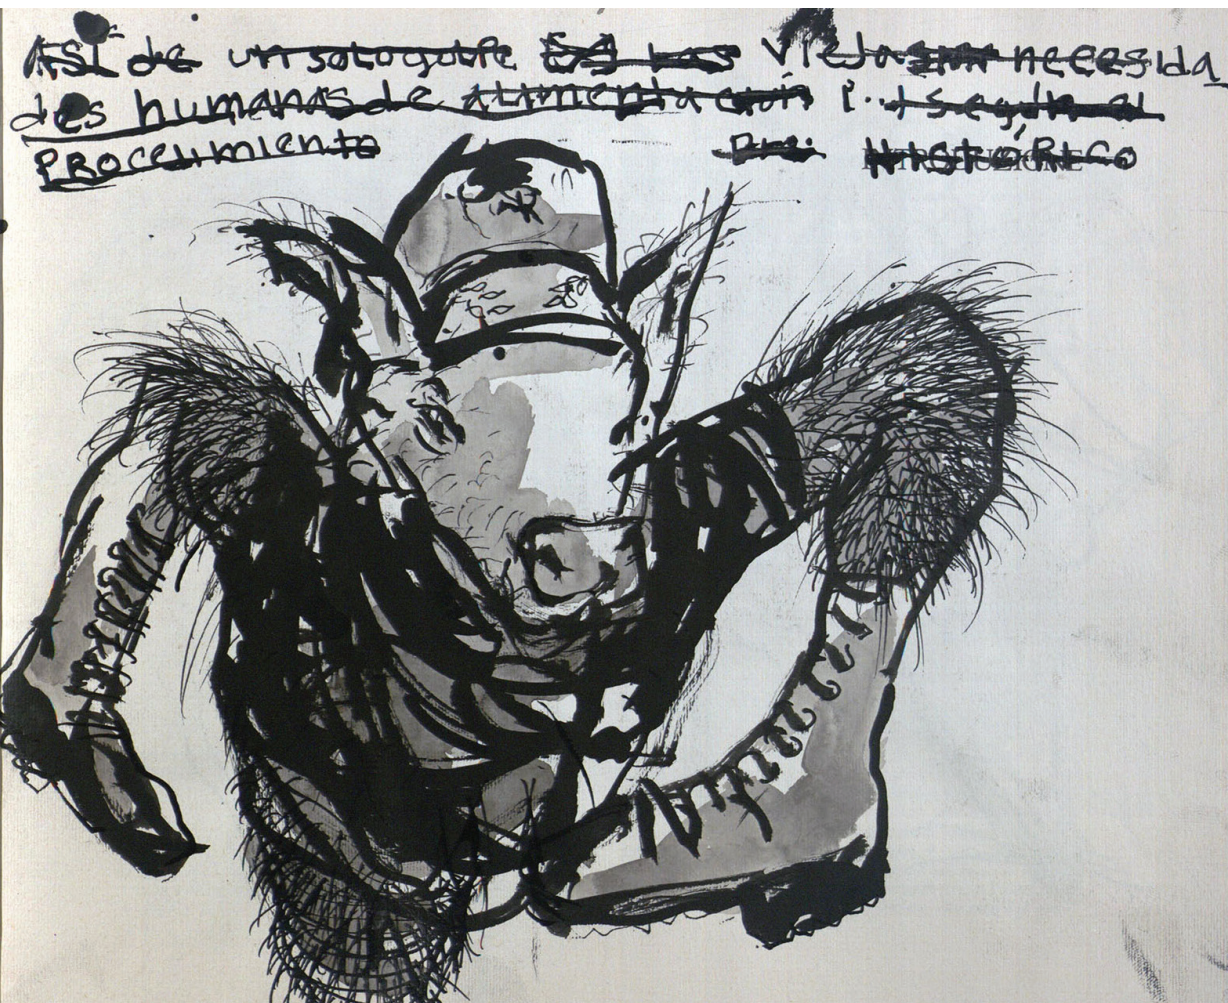 ASÍ de un solo golpe las viejas necesida
des humanas de alimentación según el
PROCEDIMIENTO HISTÓRICO